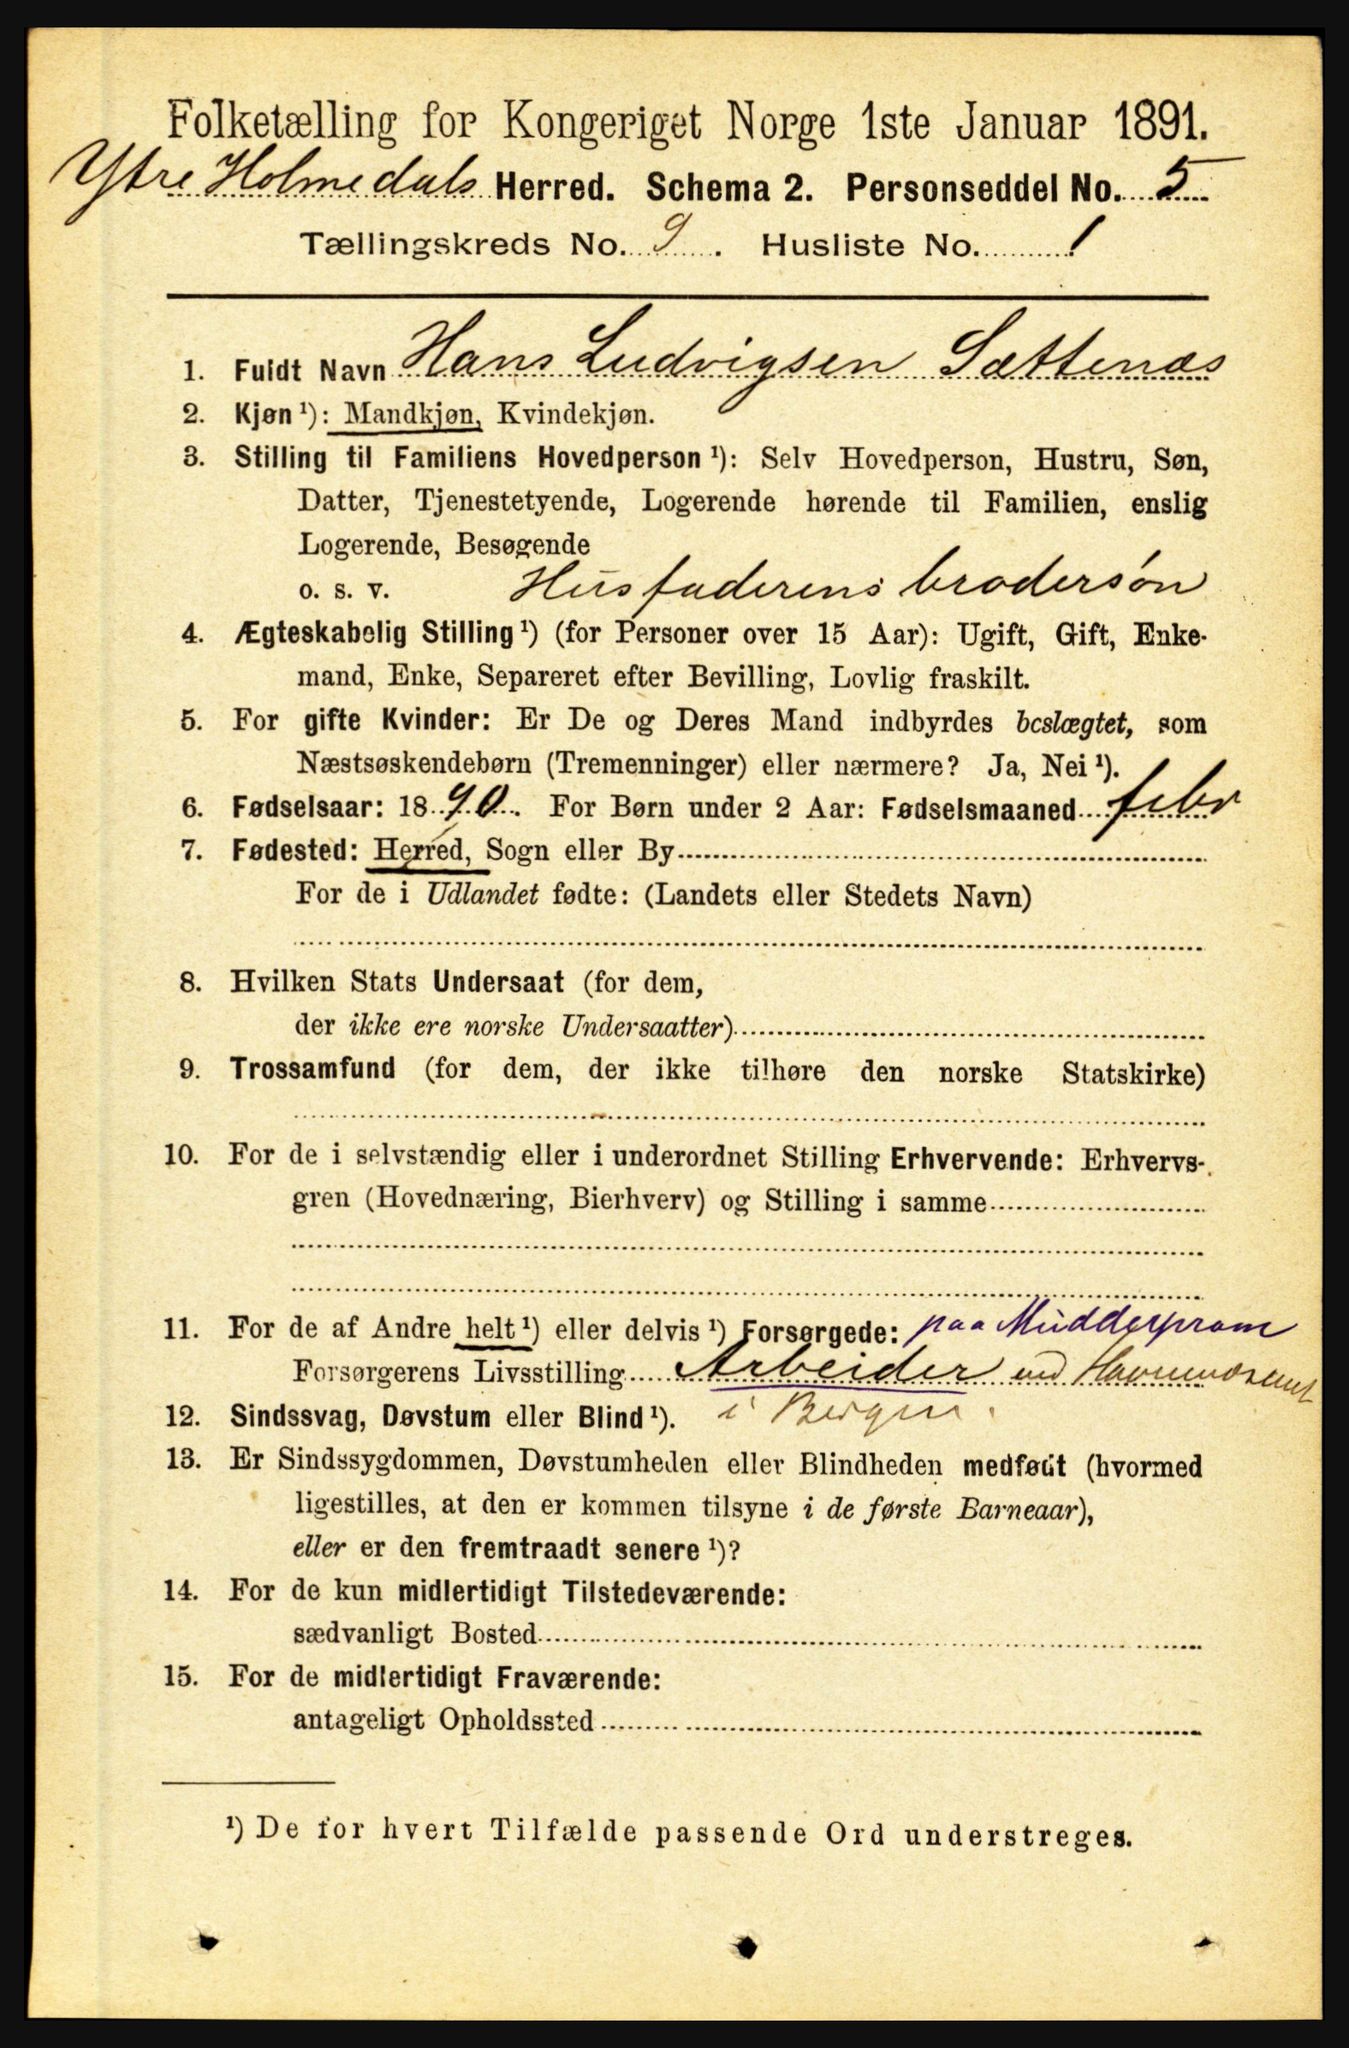 Folketælling for Kongeriget Norge 1ste Januar 1891.
Ytre Holmedals Herred. Schema 2. Personseddel No. 5
Tællingskreds No. 9. Husliste No. 1
1. Fuldt Navn Hans Ludvigsen Sættenæs
2. Kjøn ¹): Mandkjøn, Kvindekjøn.
3. Stilling til Familiens Hovedperson ¹): Selv Hovedperson, Hustru, Søn,
Datter, Tjenestetyende, Logerende hørende til Familien, enslig
Logerende, Besøgende
o. s. v. Husfaderens brodersøn
4. Ægteskabelig Stilling ¹) (for Personer over 15 Aar): Ugift, Gift, Enke-
mand, Enke, Separeret efter Bevilling, Lovlig fraskilt.
5. For gifte Kvinder: Er De og Deres Mand indbyrdes beslægtet, som
Næstsøskendebørn (Tremenninger) eller nærmere? Ja, Nei ¹).
6. Fødselsaar: 1890. For Børn under 2 Aar: Fødselsmaaned febr
7. Fødested: Herred, Sogn eller By
For de i Udlandet fødte: (Landets eller Stedets Navn)
8. Hvilken Stats Undersaat (for dem,
der ikke ere norske Undersaatter)
9. Trossamfund (for dem, der ikke tilhøre den norske Statskirke)
10. For de i selvstændig eller i underordnet Stilling Erhvervende: Erhvervs-
gren (Hovednæring, Bierhverv) og Stilling i samme
11. For de af Andre helt ¹) eller delvis ¹) Forsørgede: paa Mudderpram
Forsørgerens Livsstilling Arbeider ved Havnevæsenet
12. Sindssvag, Døvstum eller Blind ¹). i Bergen.
13. Er Sindssygdommen, Døvstumheden eller Blindheden medfødt (hvormed
ligestilles, at den er kommen tilsyne i de første Barneaar),
eller er den fremtraadt senere ¹)?
14. For de kun midlertidigt Tilstedeværende:
sædvanligt Bosted
15. For de midlertidigt Fraværende:
antageligt Opholdssted
¹) De for hvert Tilfælde passende Ord understreges.